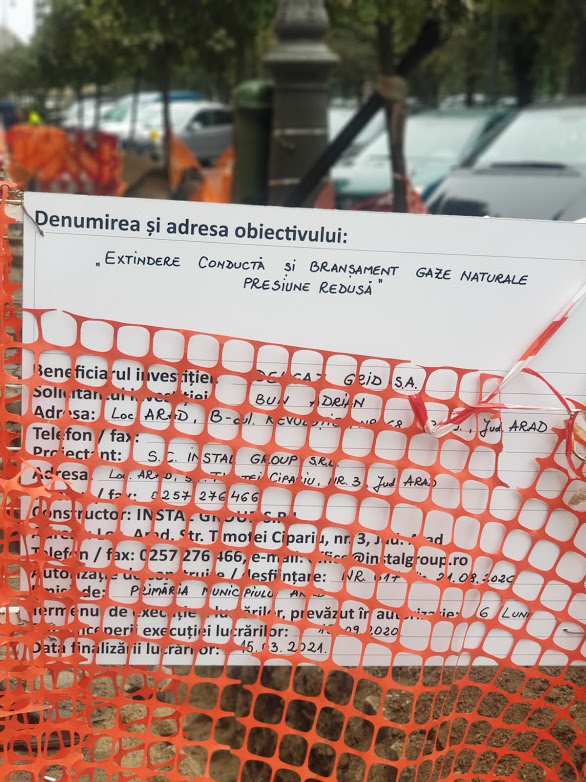 Denumirea și adresa obiectivului:
„EXTINDERE CONDUCTĂ ȘI BRANȘAMENT GAZE NATURALE
PRESIUNE REDUSĂ"
Beneficiarul investiției: DELGAZ GRID S.A.
Solicitantul investiției: BUN ADRIAN
Adresa: Loc. ARAD, B-dul. REVOLUȚIEI Jud. ARAD
Telefon / fax:
Proiectant: S.C. INSTAL GROUP S.R.L.
Adresa: Loc. ARAD, CIPARIU, NR. 3, Jud. ARAD
/ fax: 0257 276466
Constructor: INSTAL GROUP S.R.L.
Arad, Str. Timotei Cipariu, nr. 3, Jud. Arad
Telefon / fax: 0257 276 466, e-mail: office@instalgroup.ro
Autorizație de construire / desființare: NR. 21.08.2020
PRIMĂRIA MUNICIPIULUI ARAD
Termenul de execuție a lucrărilor, prevăzut în autorizație: 6 LUNI
începerii execuției lucrărilor: 09.2020
Data finalizării lucrărilor: 15.03.2021.